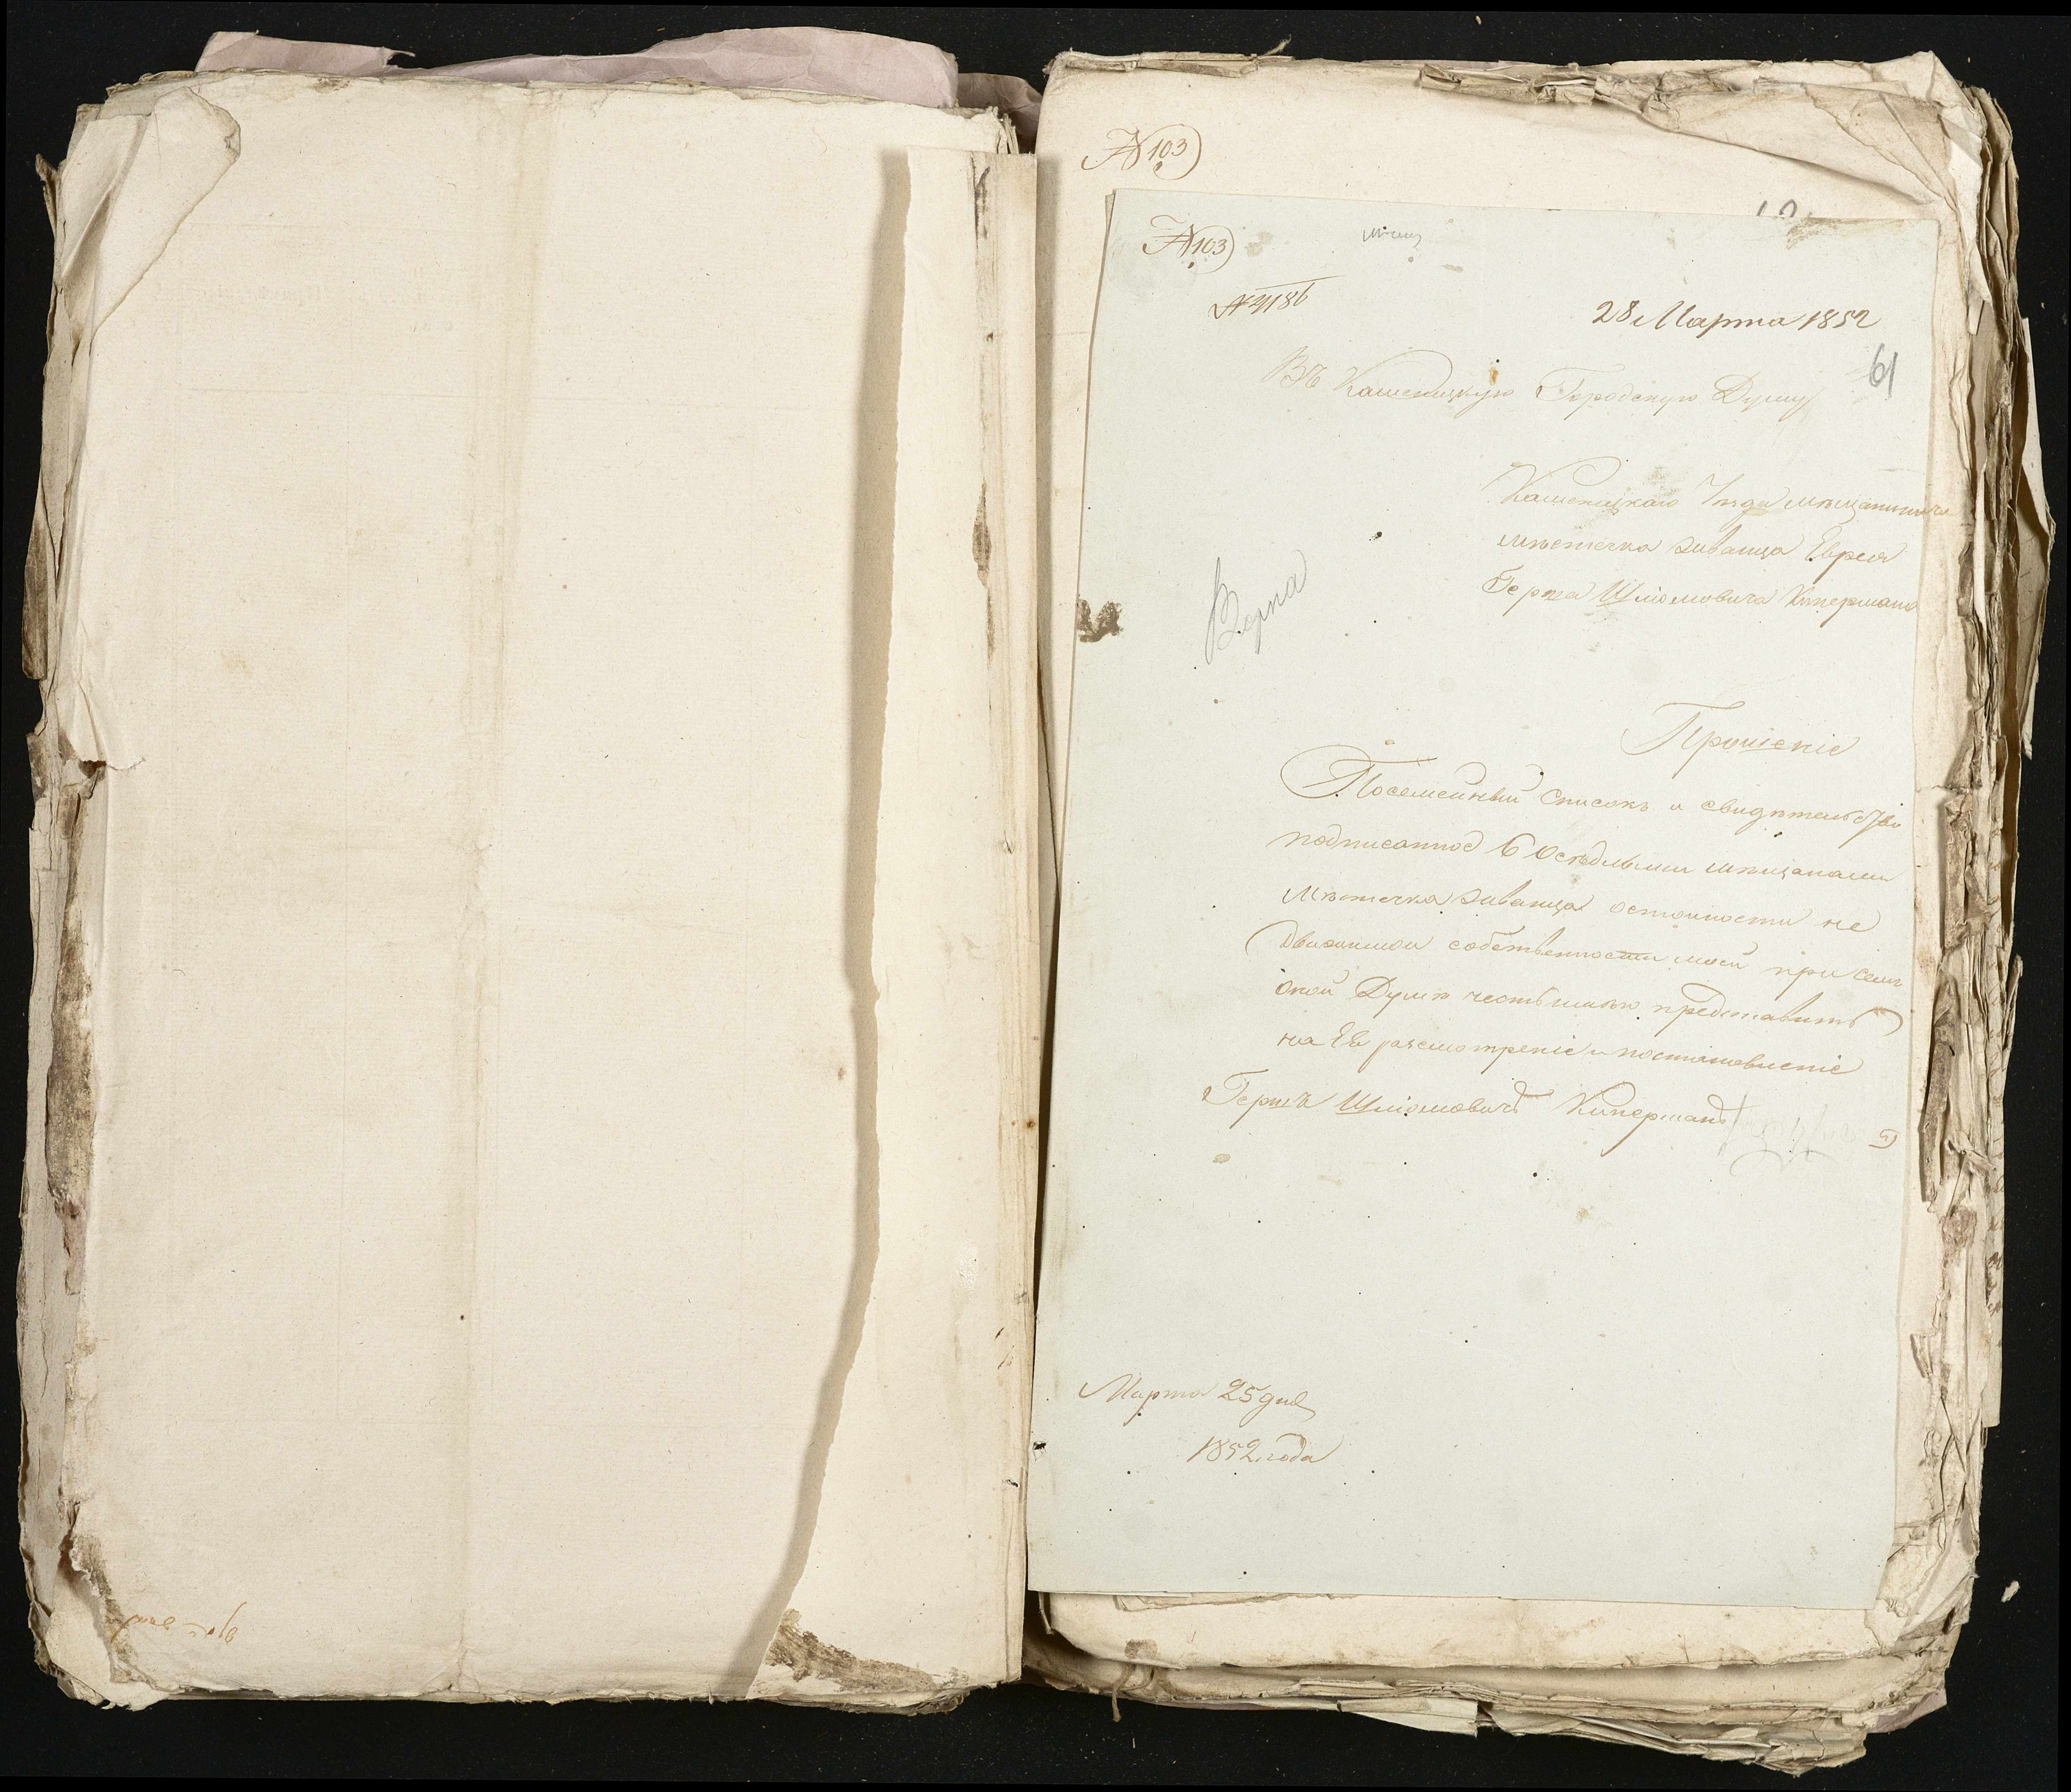 № 103
№ 103
№ 4186
28 Марта 1852
61
Въ Каменецкую Городскую Думу
Каменецкаго Уѣзда мѣщанина
мѣстечка Жванца Еврея
Герша Шліомовича Кипермана
Прошеніе
Посемейный Списокъ и свидѣтельство
подписанное 6 Осѣдлыми мѣщанами
Мѣстечка Жванца о стоимости не
движимой собственности моей при семъ
оной Думѣ честь имѣю представить
на Ея разсмотреніе и постановленіе
Гершъ Шліомовичъ Киперманъ
Марта 25 дня
1852 года